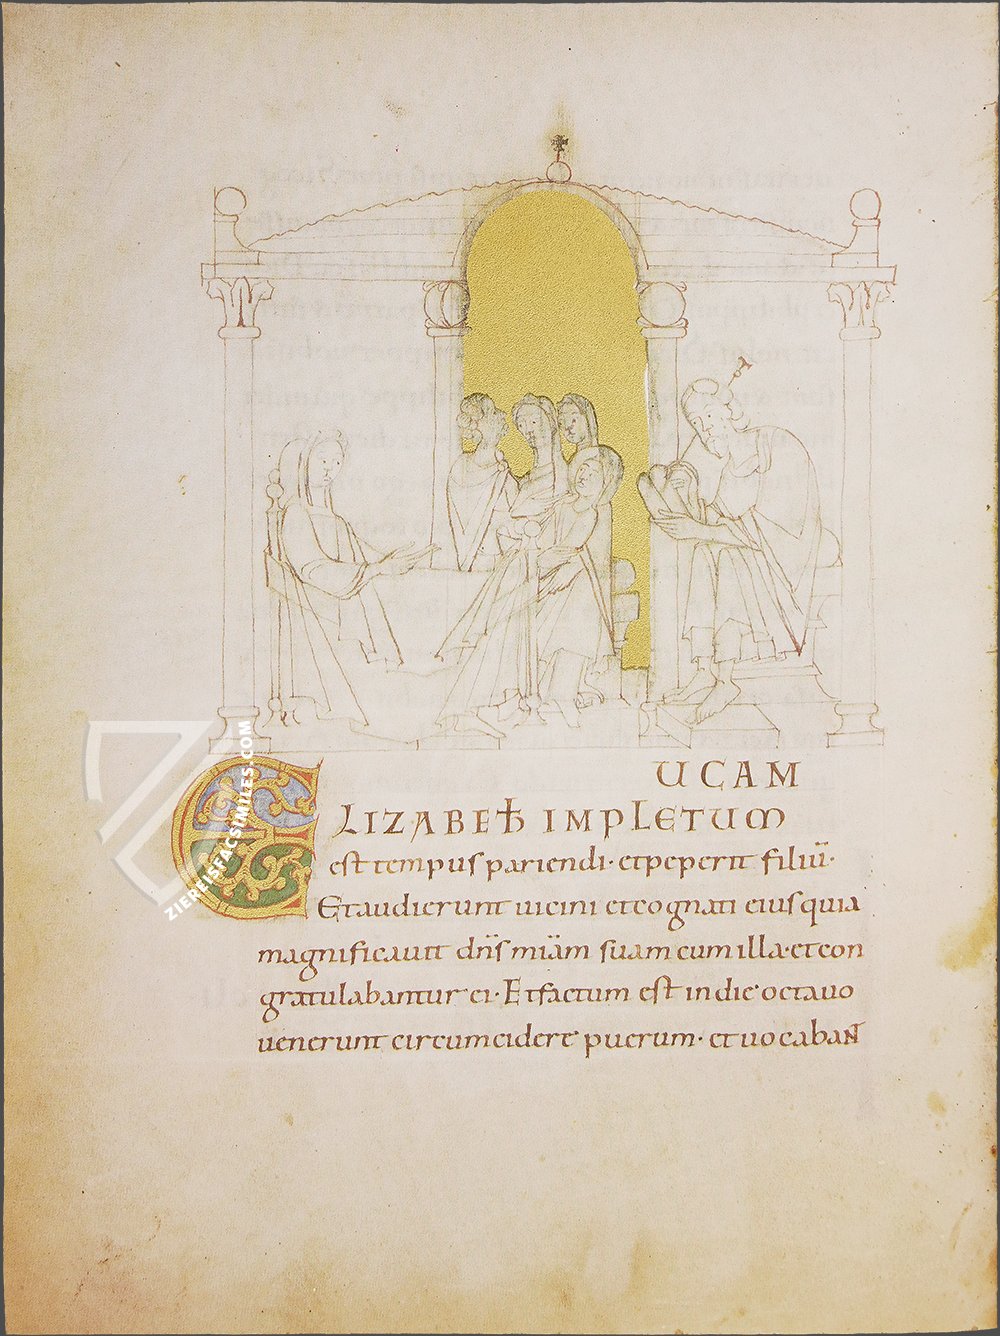 UCAM
ELIZABETH IMPLETUM
est tempus pariendi· et peperit filiū·
Et audierunt uicini et cognati eius quia
magnificauit dn̄s miā̄m suam cum illa· et con
gratulabantur ei· Et factum est in die octauo
uenerunt circumcidere puerum· et uocabant
ZIEREISFACSIMILES.COM